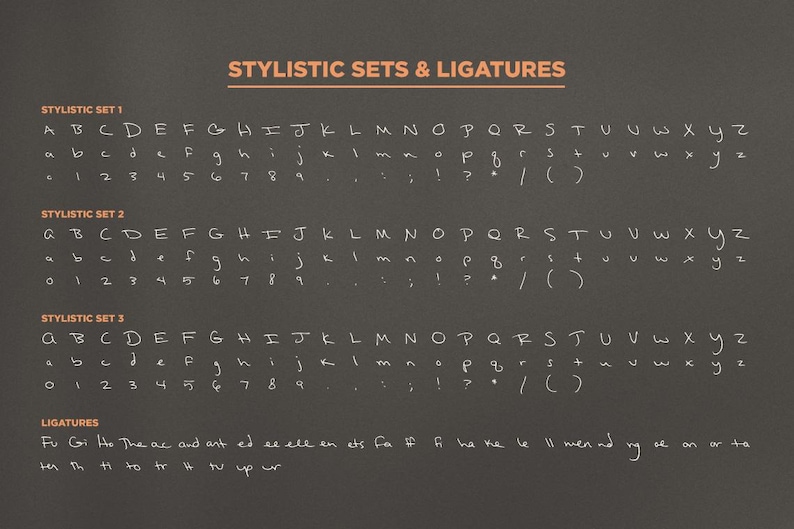 STYLISTIC SETS & LIGATURES
STYLISTIC SET 1
A B C D E F G H I J K L M N O P Q R S T U V W X Y Z
a b c d e f g h i j k l m n o p q r s t u v w x y z
0 1 2 3 4 5 6 7 8 9 . , : ; ! ? * / ( )
STYLISTIC SET 2
a B C D E F G H I J K L M N O P Q R S T U V W X Y Z
a b c d e f g h i j k l m n o p q r s t u v w x y z
0 1 2 3 4 5 6 7 8 9 . , : ; ! ? * / ( )
STYLISTIC SET 3
a B C D E F G H I J K L M N O P Q R S T U V W X Y Z
a b c d e f g h i j k l m n o p q r s t u v w x y z
0 1 2 3 4 5 6 7 8 9 . , : ; ! ? * / ( )
LIGATURES
Fu Gi Ho The ac and ant ed ee elle en ets fa ff fi ha ke le ll men nd ng oe on or ta
ten th ti to tr tt tu up ur